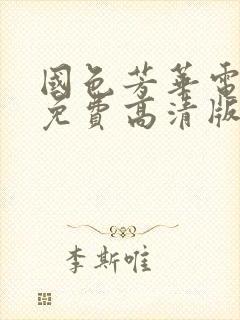 國色芳華電
免費高清版
李斯唯